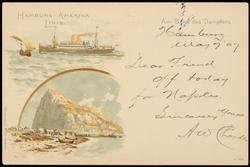 HAMBURG-AMERIKA
LINIE.
An Bord des Dampfers
Hamburg
May 7/07
Dear Friend
Off today
for Naples.
Sincerely Yours
A W